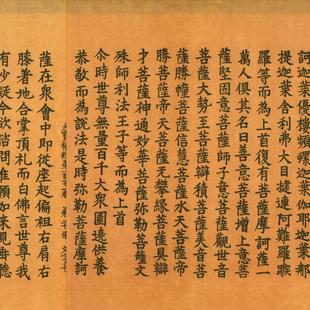 訶迦葉優樓頻螺迦葉伽耶迦葉那
提迦葉舍利弗大目揵連阿難羅睺
羅等而為上首復有菩薩摩訶薩一
萬人俱其名曰善意菩薩增上意菩
薩堅固意菩薩師子意菩薩觀世音
菩薩大勢至菩薩辯積菩薩美音菩
薩勝幢菩薩信慧菩薩水天菩薩帝
勝菩薩帝天菩薩无攀緣菩薩具辯
才菩薩神通妙華菩薩弥勒菩薩文
殊師利法王子等而為上首
尒時世尊無量百千大眾圍遶供養
恭敬而為說法是時弥勒菩薩摩訶
薩在眾會中即從座起偏袒右肩右
膝著地合掌頂礼而白佛言世尊我
有少疑今欲諮問唯願如來見垂聽